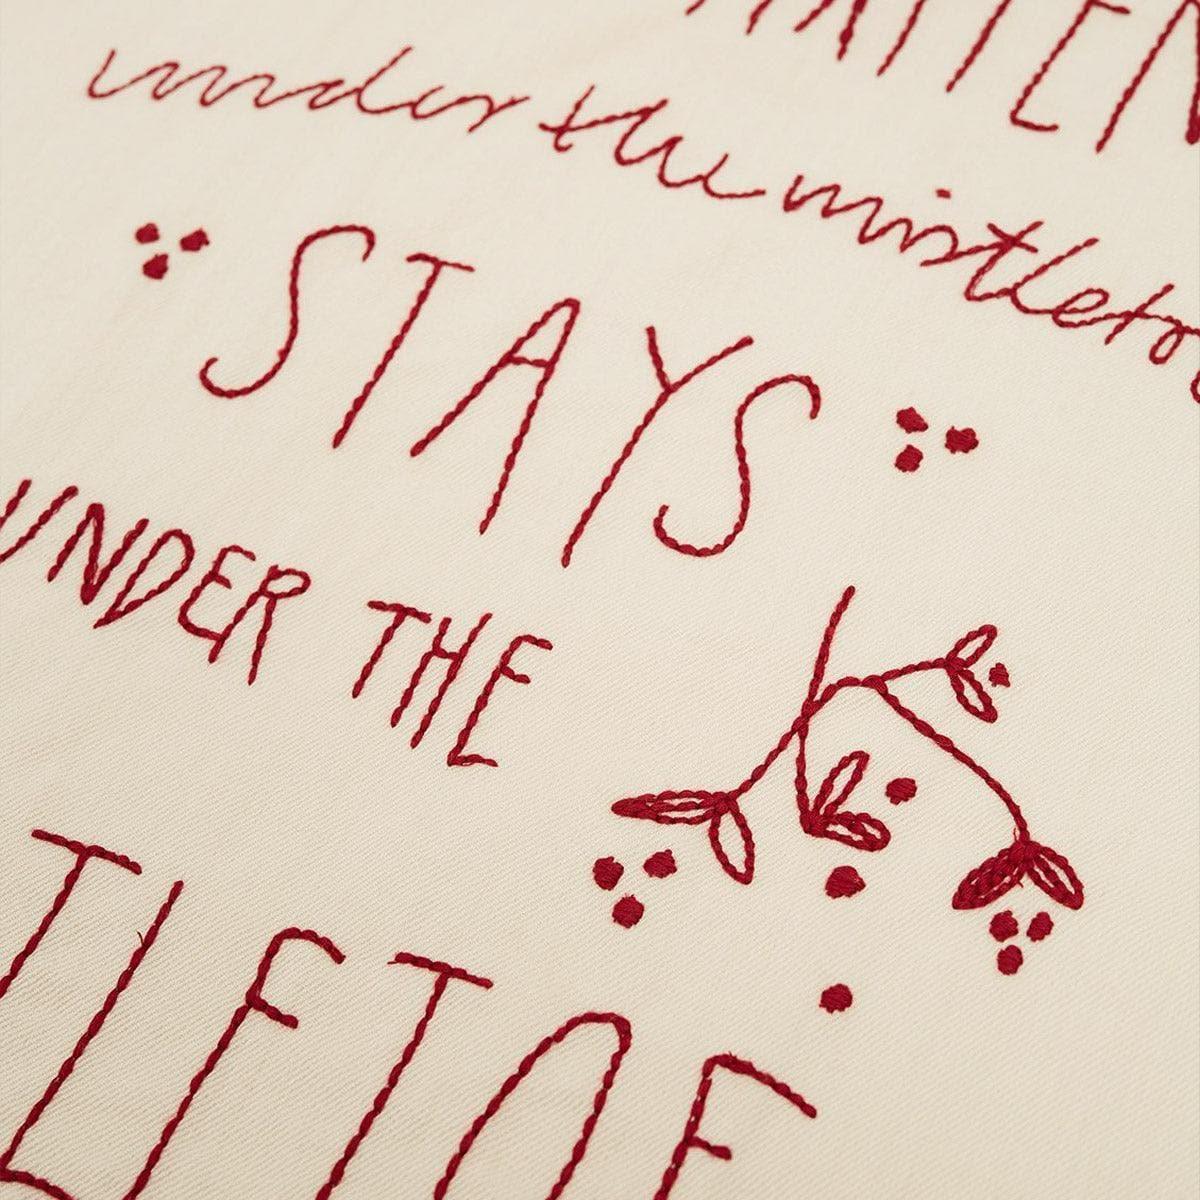 under the mistleto
STAYS
UNDER THE
TLETOE